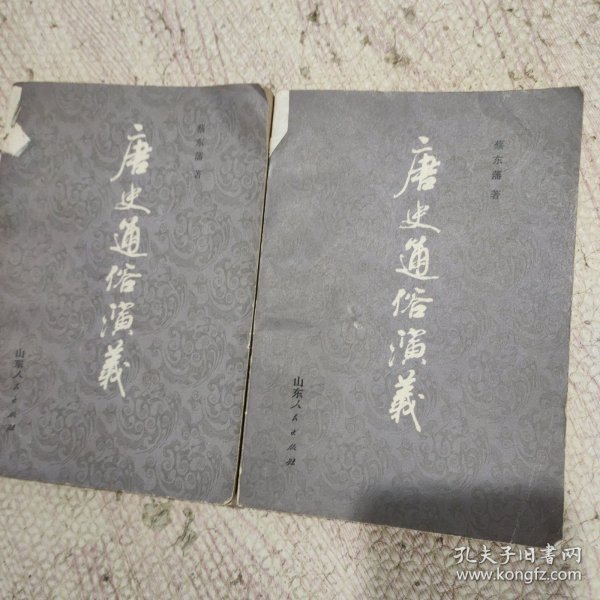 蔡东藩 著
唐史通俗演義
山东人民出版社
蔡东藩 著
唐史通俗演義
山东人民出版社
孔夫子旧书网
www.kongfz.com